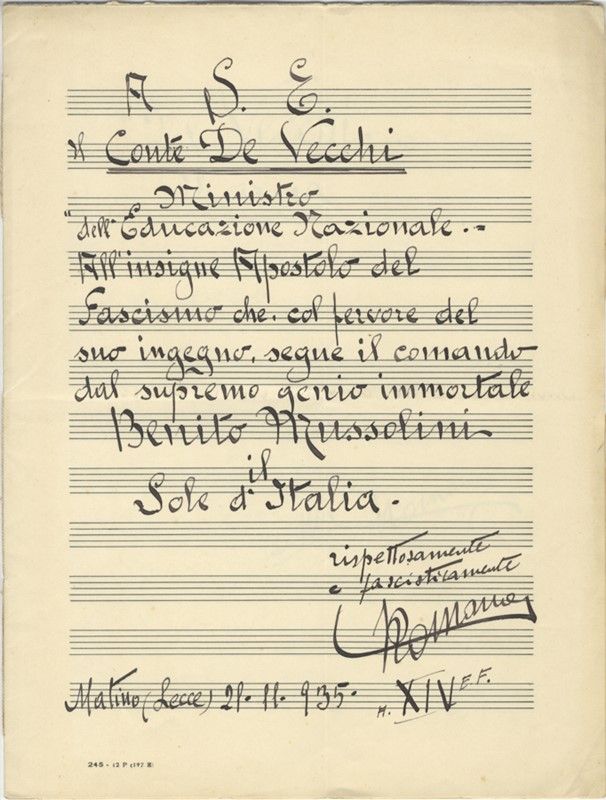 A S. E.
Il Conte De Vecchi
Ministro
dell'Educazione Nazionale.-
All'insigne Apostolo del
Fascismo che, col fervore del
suo ingegno, segue il comando
dal supremo genio immortale
Benito Mussolini
il
Sole d'Italia.
rispettosamente
e fascisticamente
Romano
Matino (Lecce) 21. 11. 935. A. XIV E.F.
245 - 12 P (197 E)